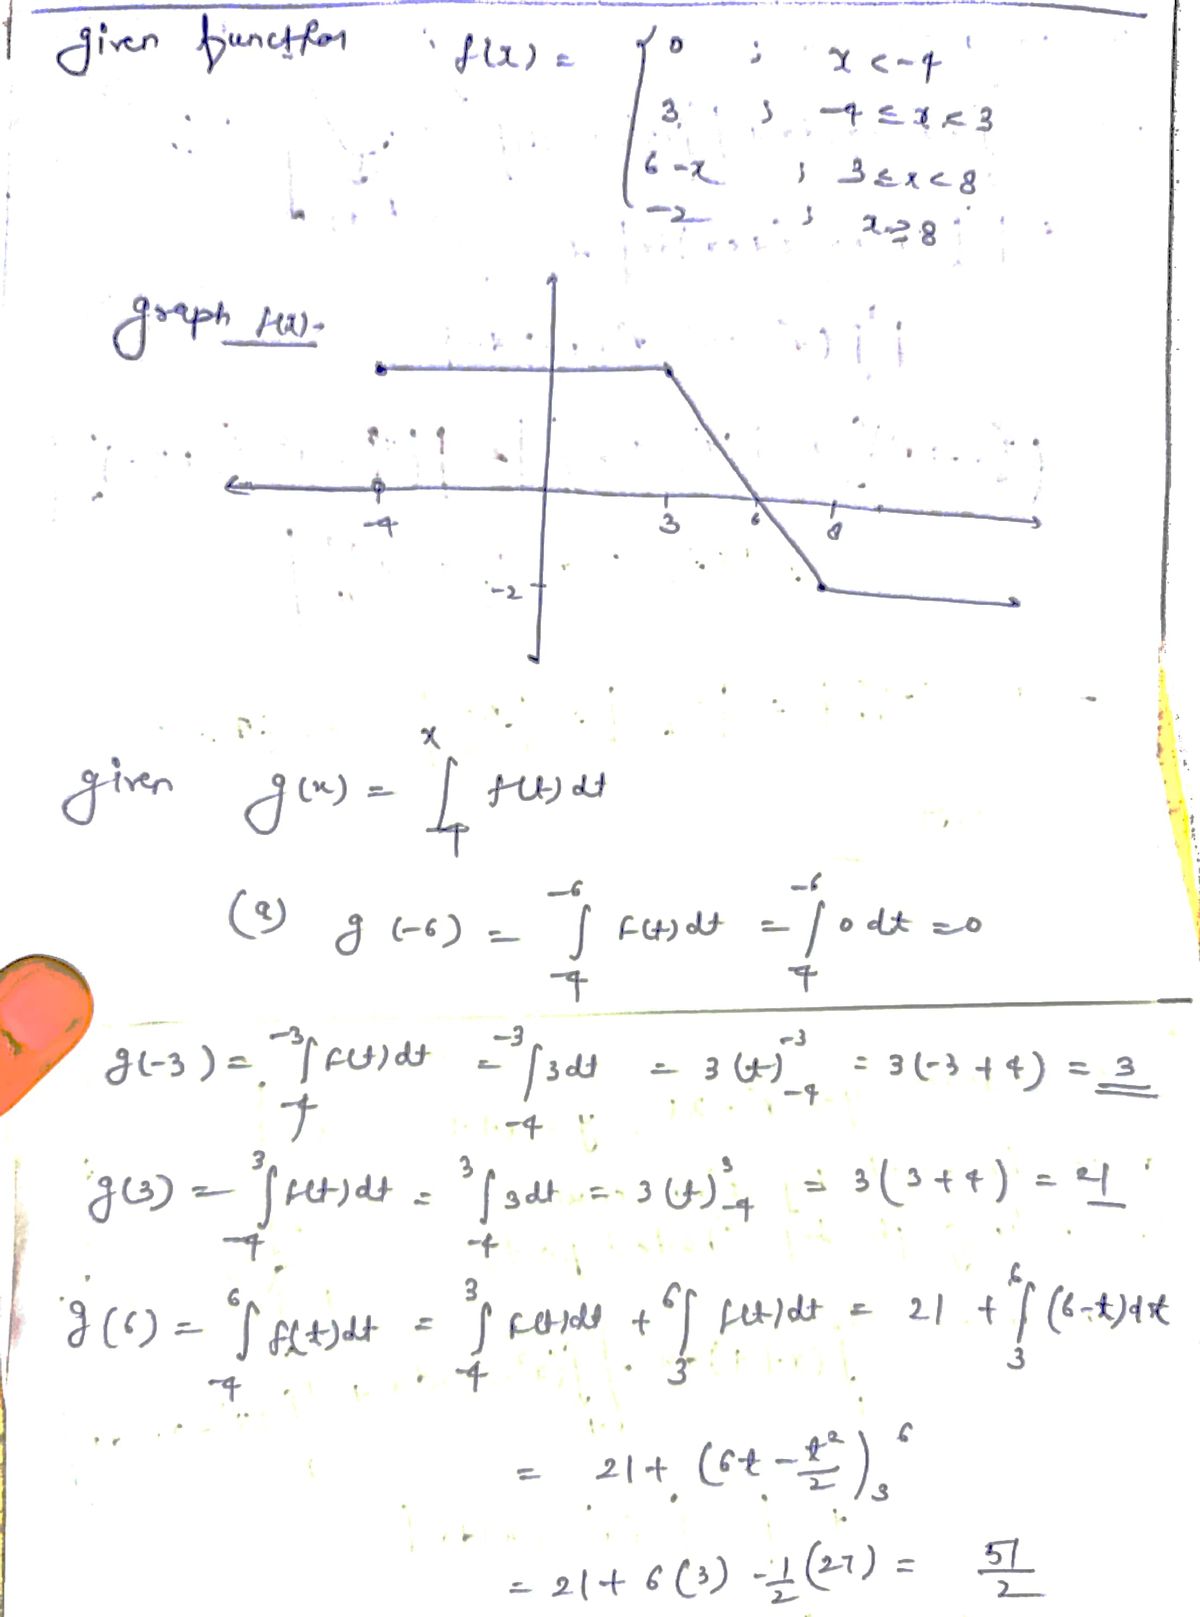 given function f(x) = { 0 ; x < -4
3 ; -4 ≤ x < 3
6 - x ; 3 ≤ x < 8
-2 ; x ≥ 8
graph f(x)-
-4 3 6 8
-2
given g(x) = ∫_{-4}^{x} f(t) dt
(a) g(-6) = ∫_{-4}^{-6} f(t) dt = ∫_{-4}^{-6} 0 dt = 0
g(-3) = ∫_{-4}^{-3} f(t) dt = ∫_{-4}^{-3} 3 dt = 3 (t)_{-4}^{-3} = 3(-3 + 4) = 3
g(3) = ∫_{-4}^{3} f(t) dt = ∫_{-4}^{3} 3 dt = 3 (t)_{-4}^{3} = 3(3 + 4) = 21
g(6) = ∫_{-4}^{6} f(t) dt = ∫_{-4}^{3} f(t) dt + ∫_{3}^{6} f(t) dt = 21 + ∫_{3}^{6} (6-t) dt
= 21 + (6t - t²/2)_{3}^{6}
= 21 + 6(3) - 1/2 (27) = 51/2